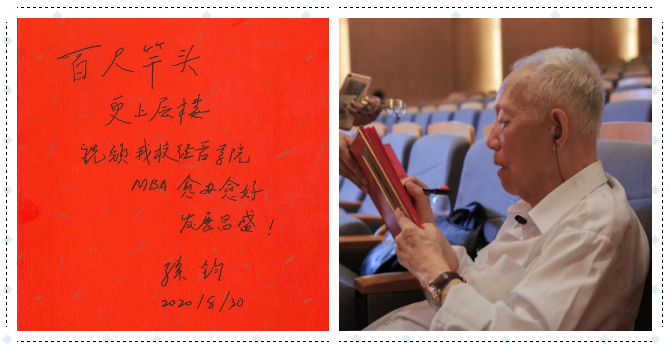 百尺竿头
更上层楼
祝颂我校经管学院
MBA 愈办愈好
发展昌盛！
孫钧
2020/8/30